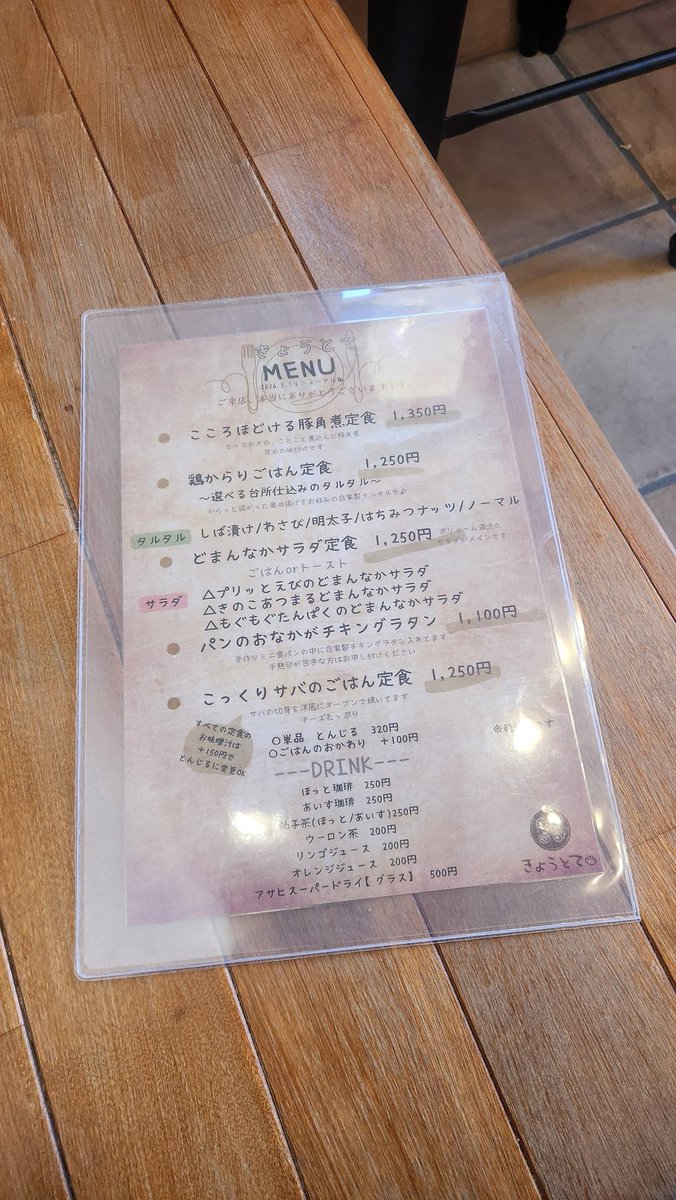 きょうとで
MENU
ご来店、本当にありがとうございます！！
こころほどける豚角煮定食 1,350円
とっておきの、ことこと煮込んだ豚角煮
甘めの味付けです
鶏からりごはん定食 1,250円
～選べる台所仕込みのタルタル～
からっと揚がった竜田揚げをお好みの自家製タルタルで♪
タルタル しば漬け/わさび/明太子/はちみつナッツ/ノーマル
どまんなかサラダ定食 1,250円 ボリューム満点の
サラダがメインです
ごはんorトースト
サラダ △プリッとえびのどまんなかサラダ
△きのこあつまるどまんなかサラダ
△もぐもぐたんぱくのどまんなかサラダ
パンのおなかがチキングラタン 1,100円
手作りミニ食パンの中に自家製チキングラタン入れてます
半熟卵が苦手な方はお申し付けください
こっくりサバのごはん定食 1,250円
サバの切身を洋風にオーブンで焼いてます
チーズたっぷり
すべての定食の
お味噌汁は
+150円で
とんじるに変更OK
〇単品 とんじる 320円
〇ごはんのおかわり +100円
です
---DRINK---
ほっと珈琲 250円
あいす珈琲 250円
子茶(ほっと/あいす)250円
ウーロン茶 200円
リンゴジュース 200円
オレンジジュース 200円
アサヒスーパードライ【グラス】 500円
きょうとで